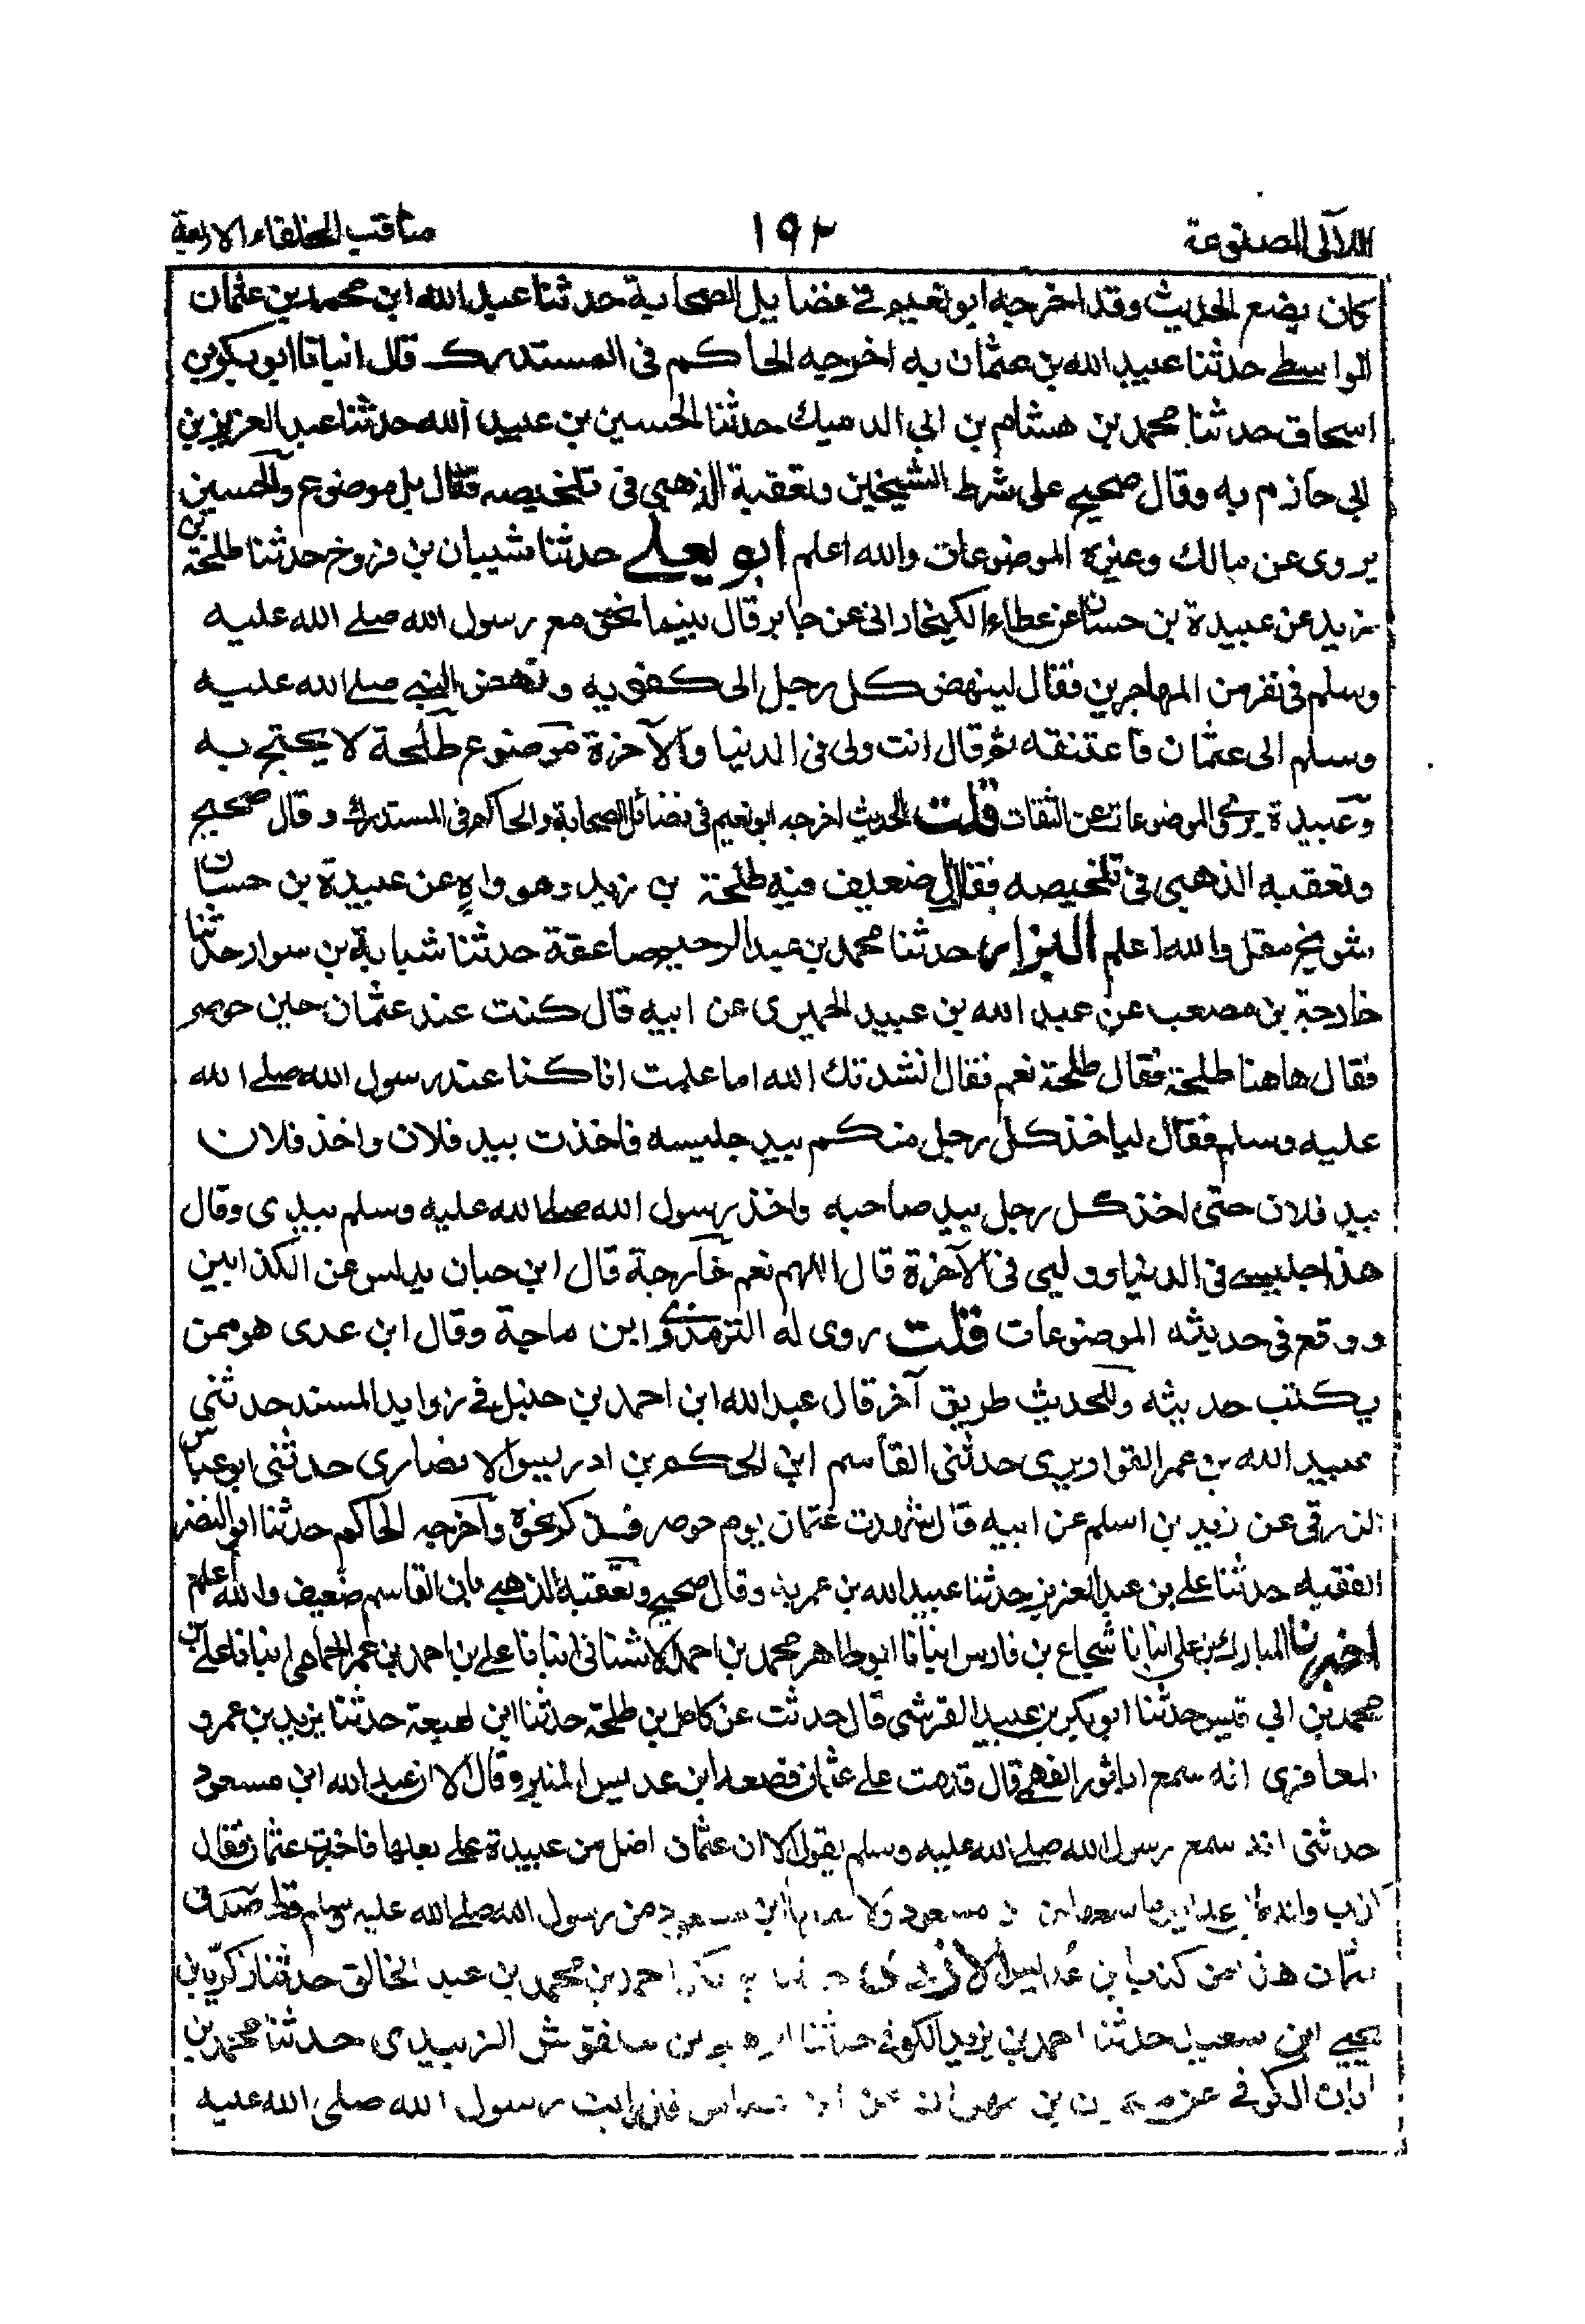 اللآلى المصنوعة ١٩٢ مناقب الخلفاء الاربعة
كان يضع الحديث وقد اخرجه ابو نعيم فى فضايل الصحابة حدثنا عبد الله ابن محمد بن عثمان
الواسطى حدثنا عبيد الله بن عثمان به اخرجه الحاكم فى المستدرك قال انبانا ابو بكر بن
اسحاق حدثنا محمد بن هشام بن ابى الدميك حدثنا الحسين بن عبيد الله حدثنا عبد العزيز بن
ابى حازم به وقال صحيح على شرط الشيخين وتعقبه الذهبى فى تلخيصه فقال بل موضوع والحسين
يروى عن مالك وغيره الموضوعات والله اعلم ابو يعلى حدثنا شيبان بن فروخ حدثنا طلحة بن
زيد عن عبيدة بن حسان عن عطاء الكيخارانى عن جابر قال بينما نحن مع رسول الله صلى الله عليه
وسلم فى نفر من المهاجرين فقال لينهض كل رجل الى كفويه ونهض النبى صلى الله عليه
وسلم الى عثمان فاعتنقه ثم قال انت ولى فى الدنيا والآخرة موضوع طلحة لا يحتج به
وعبيدة يروى الموضوعات عن الثقات قلت الحديث اخرجه ابو نعيم فى فضائل الصحابة والحاكم فى المستدرك وقال صحيح
وتعقبه الذهبى فى تلخيصه فقال ضعيف فيه طلحة بن زيد وهو واهٍ عن عبيدة بن حسان
شويخ مقل والله اعلم البزار حدثنا محمد بن عبد الرحيم صاعقة حدثنا شبابة بن سوار حدثنا
خارجة بن مصعب عن عبد الله بن عبيد الحميرى عن ابيه قال كنت عند عثمان حين حوصر
فقال هاهنا طلحة فقال طلحة نعم فقال انشدتك الله اما علمت انا كنا عند رسول الله صلى الله
عليه وسلم فقال لياخذ كل رجل منكم بيد جليسه فاخذت بيد فلان واخذ فلان
بيد فلان حتى اخذ كل رجل بيد صاحبه واخذ رسول الله صلى الله عليه وسلم بيدى وقال
هذا جليسى فى الدنيا وولى فى الآخرة قال اللهم نعم خارجة قال ابن حبان يدلس عن الكذابين
ووقع فى حديثه الموضوعات قلت روى له الترمذى وابن ماجة وقال ابن عدى هو ممن
يكتب حديثه وللحديث طريق آخر قال عبد الله ابن احمد بن حنبل فى زوايد المسند حدثنى
عبيد الله بن عمر القواريرى حدثنى القاسم ابن الحكم بن ادريس الانصارى حدثنى ابو عباس
الزرقى عن زيد بن اسلم عن ابيه قال شهدت عثمان يوم حوصر فذكر نحوه واخرجه الحاكم حدثنا ابو النضر
الفقيه حدثنا على بن عبد العزيز حدثنا عبيد الله بن عمر به وقال صحيح وتعقبه الذهبى بان القاسم ضعيف والله اعلم
اخبرنا المبارك بن على انبانا شجاع بن فارس انبانا ابو طاهر محمد بن احمد الاشنانى انبانا على بن احمد بن عمر الحمامى انبانا على بن
محمد بن ابى قيس حدثنا ابو بكر بن عبيد القرشى قال حدثت عن كامل بن طلحة حدثنا ابن لهيعة حدثنا يزيد بن عمرو
المعافرى انه سمع ابا ثور الفهمى قال قدمت على عثمان فصعد ابن عديس المنبر وقال الا ان عبد الله ابن مسعود
حدثنى انه سمع رسول الله صلى الله عليه وسلم يقول الا ان عثمان اضل من عبيدة على بعلها فاخبرت عثمان فقال
كذب والله ابن عديس ما سمعها من ابن مسعود ولا سمعها ابن مسعود من رسول الله صلى الله عليه وسلم قط صدق
عثمان هذا من كذب ابن عديس الازدى احمد بن محمد بن عبد الخالق حدثنا زكريا بن
يحيى ابن سعيد حدثنا احمد بن يزيد الكوفى حدثنا بن منقوش الزبيدى حدثنا محمد بن
ابان الكوفى عن بن مهران عن ابن عباس قال رايت رسول الله صلى الله عليه